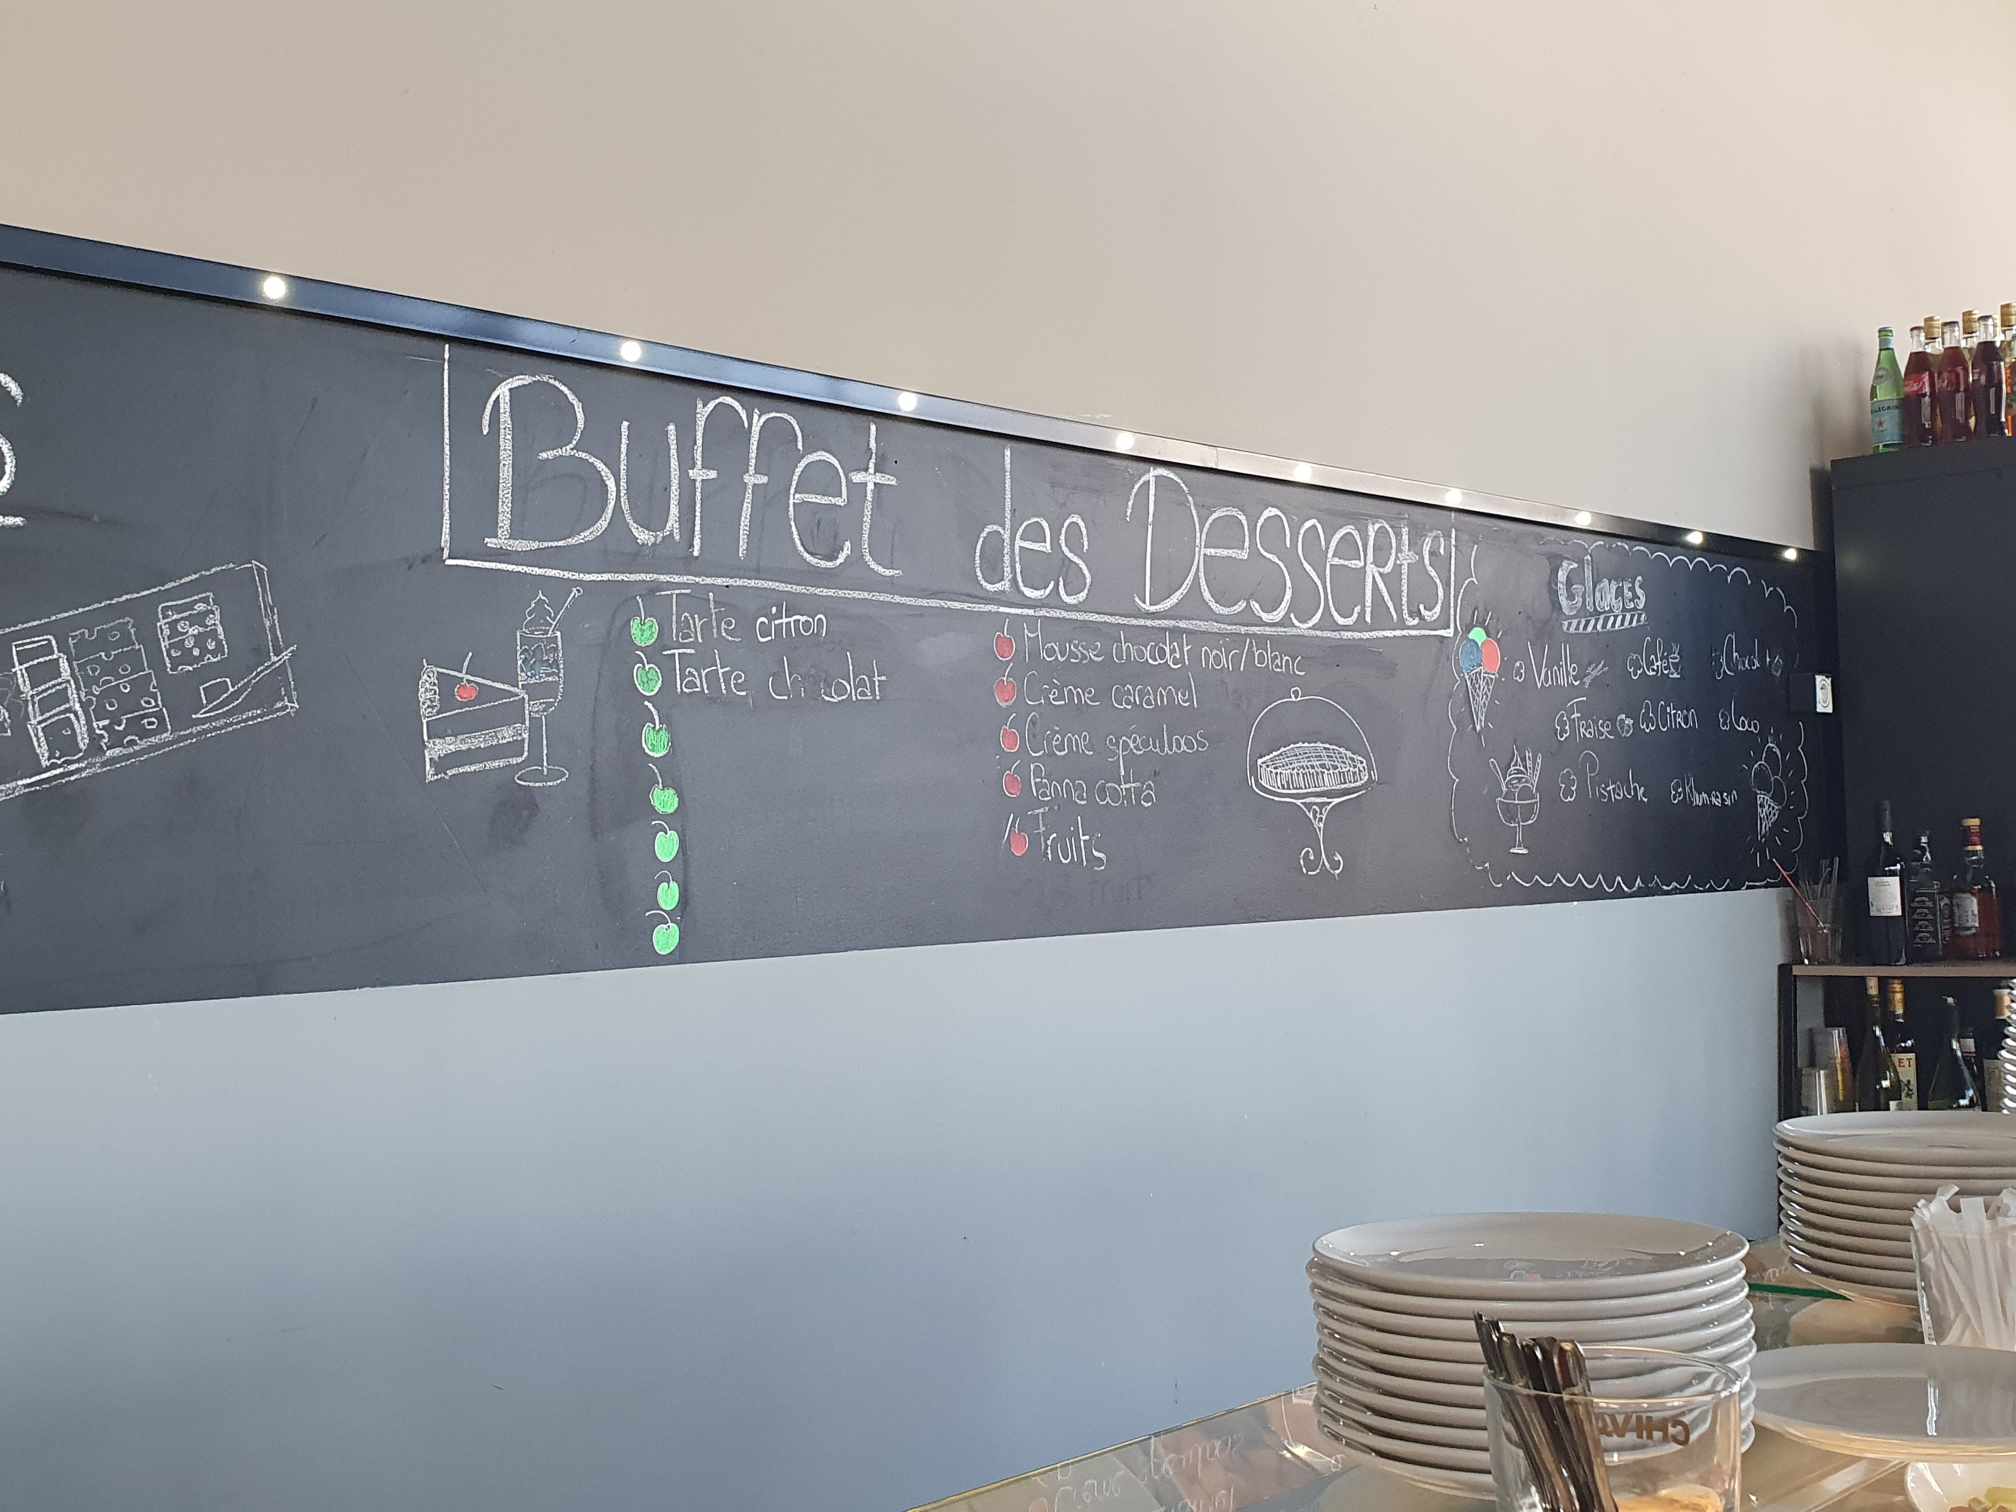 Buffet des Desserts
Tarte citron
Tarte chocolat
Mousse chocolat noir/blanc
Crème caramel
Crème spéculoos
Panna cotta
Fruits
Glaces
Vanille Café Chocolat
Fraise Citron Coco
Pistache
CHIVAS